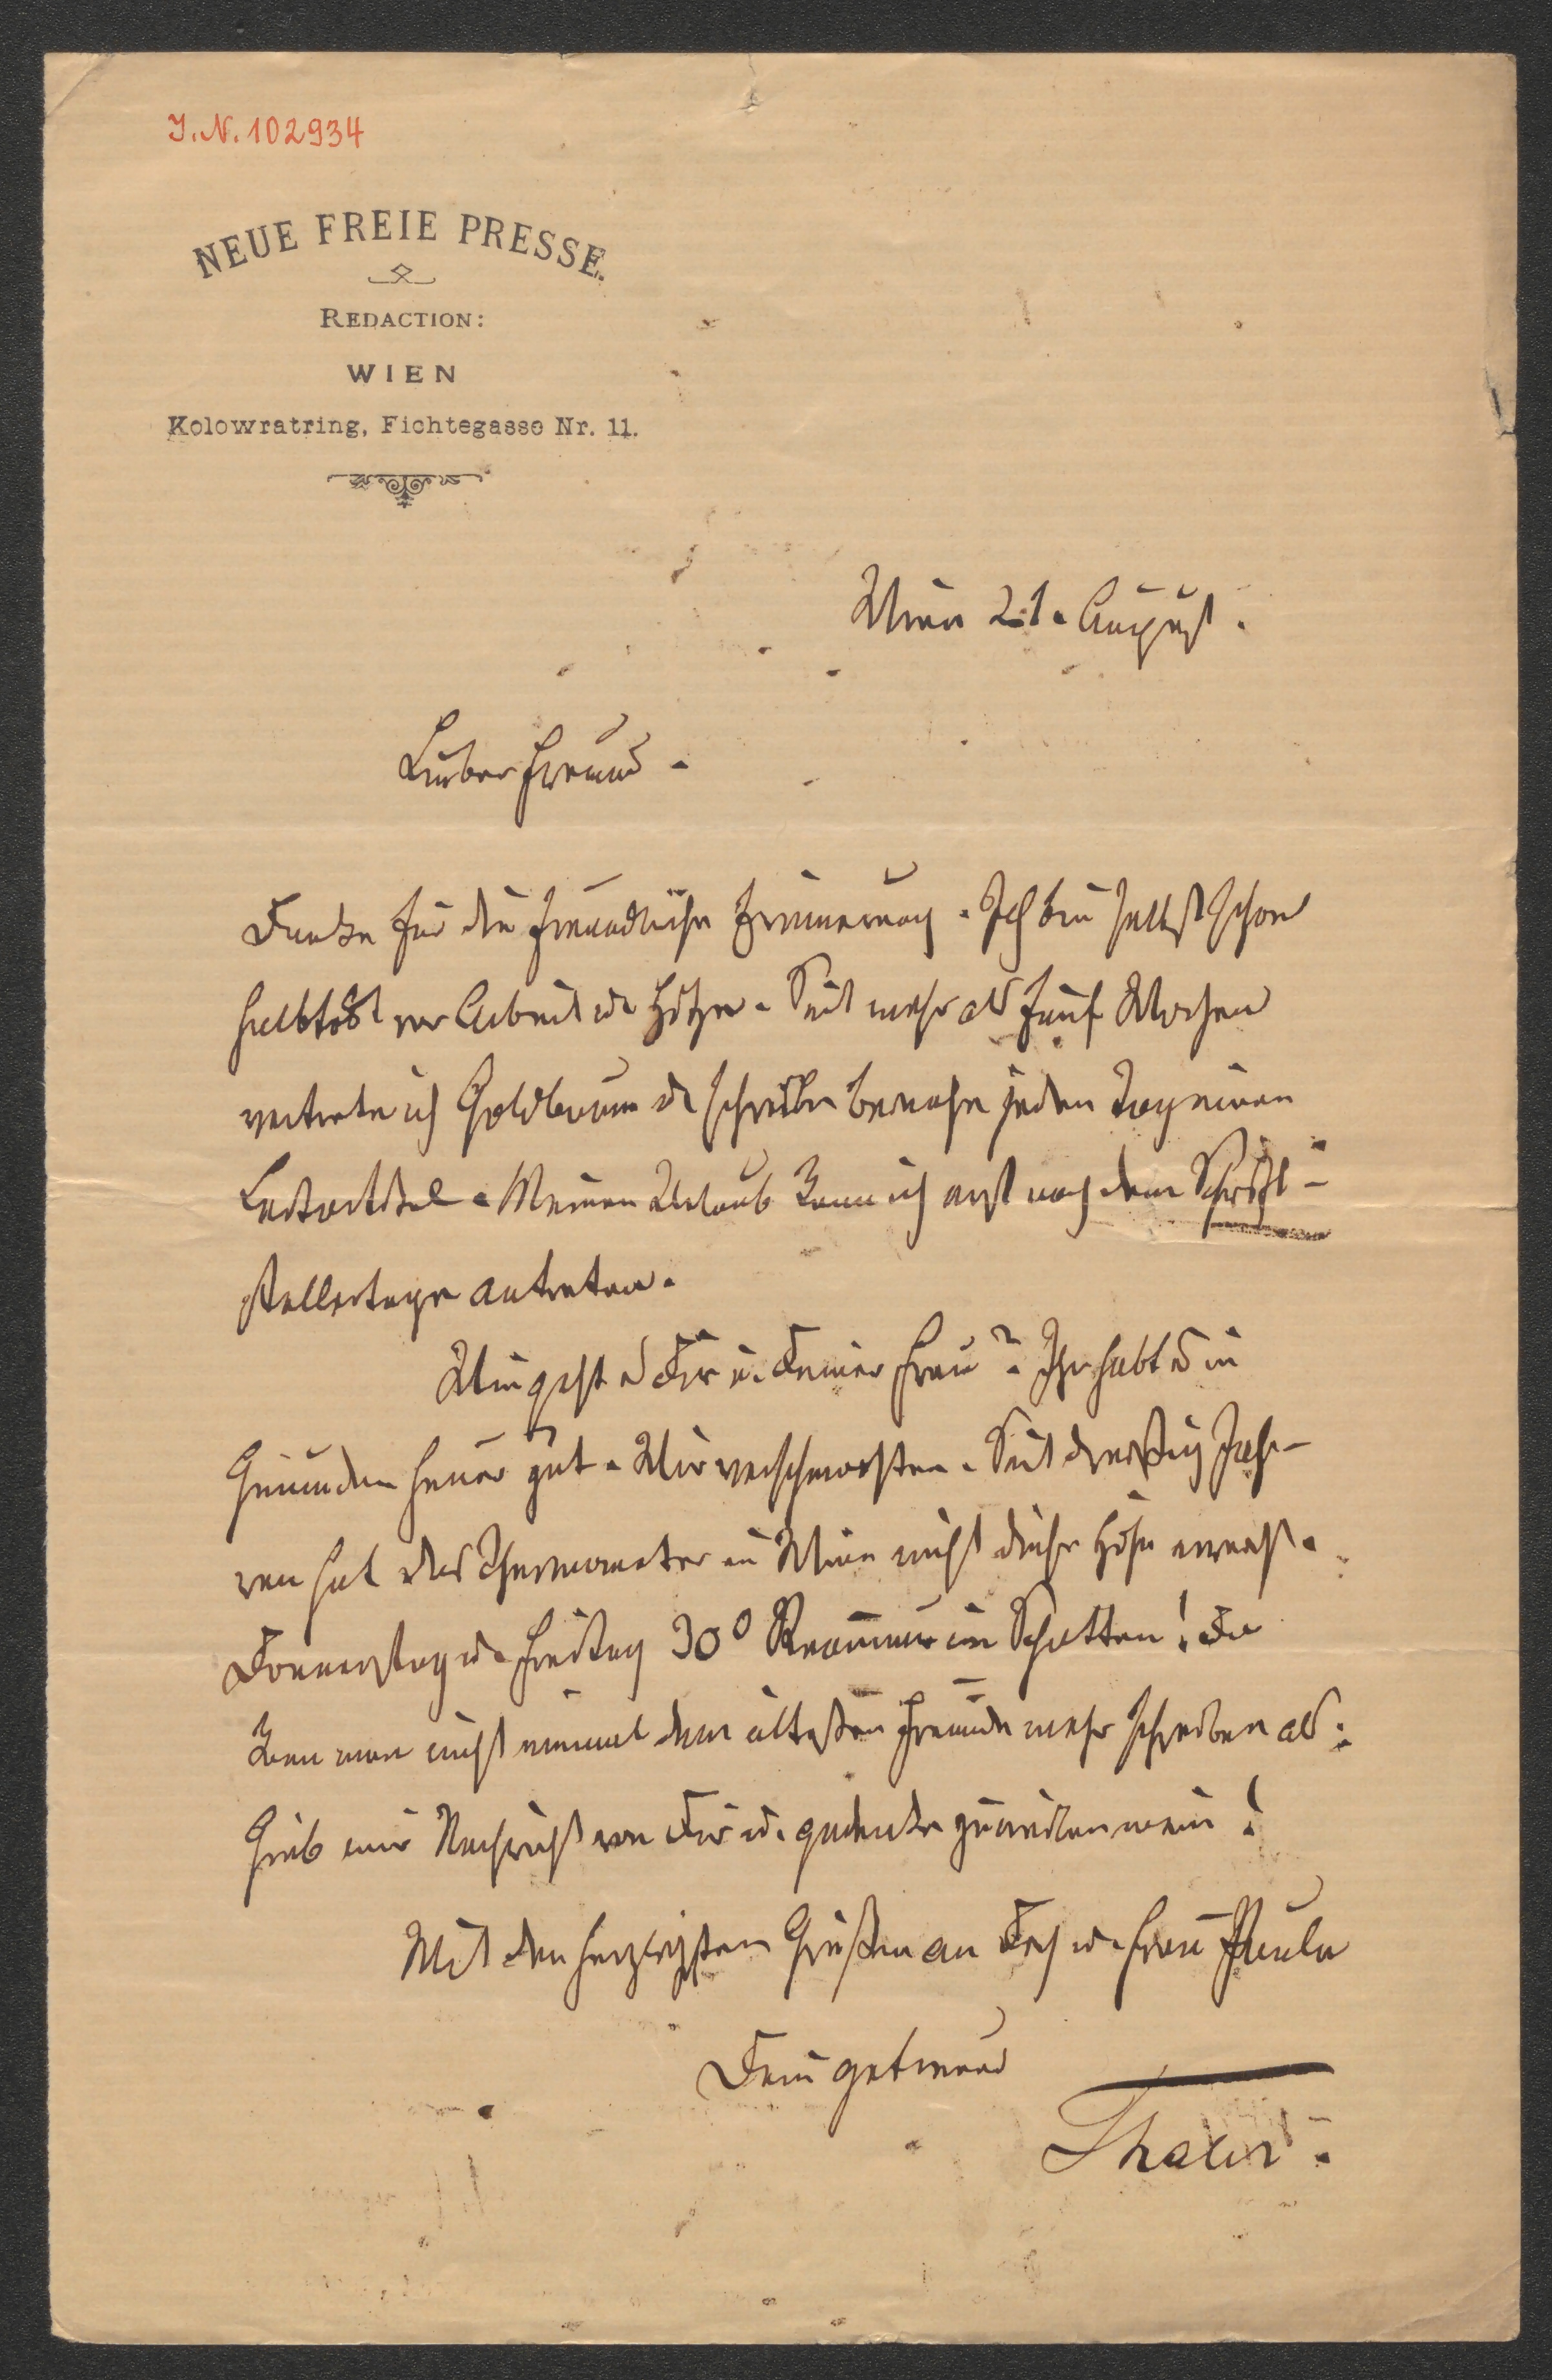 I.N. 102934
NEUE FREIE PRESSE.
REDACTION:
WIEN
Kolowratring, Fichtegasse Nr. 11.
Wien 21. August.
Lieber Freund.
Danke für die freundliche Erinnerung. Ich bin selbst schon
halbtodt vor Arbeit u. Hitze. Seit mehr als fünf Wochen
vertrete ich Goldbaum u. schreibe beinahe jeden Tag einen
Leitartikel. Meinen Urlaub kann ich erst nach dem Schrift-
stellertage antreten.
Wie geht es Dir u. Deiner Frau? Ihr habt es in
Gmunden heuer gut. Wir verschmachten. Seit dreißig Jah-
ren hat das Thermometer in Wien nicht diese Höhe erreicht.
Donnerstag u. Freitag 30° Reaumur im Schatten! Da
kann man nicht einmal dem ältesten Freunde mehr schreiben als:
Gieb mir Nachricht von Dir u. gedenke zuweilen mein!
Mit den herzlichsten Grüßen an Dich u. Frau Paula
Dein getreuer
Thaler.